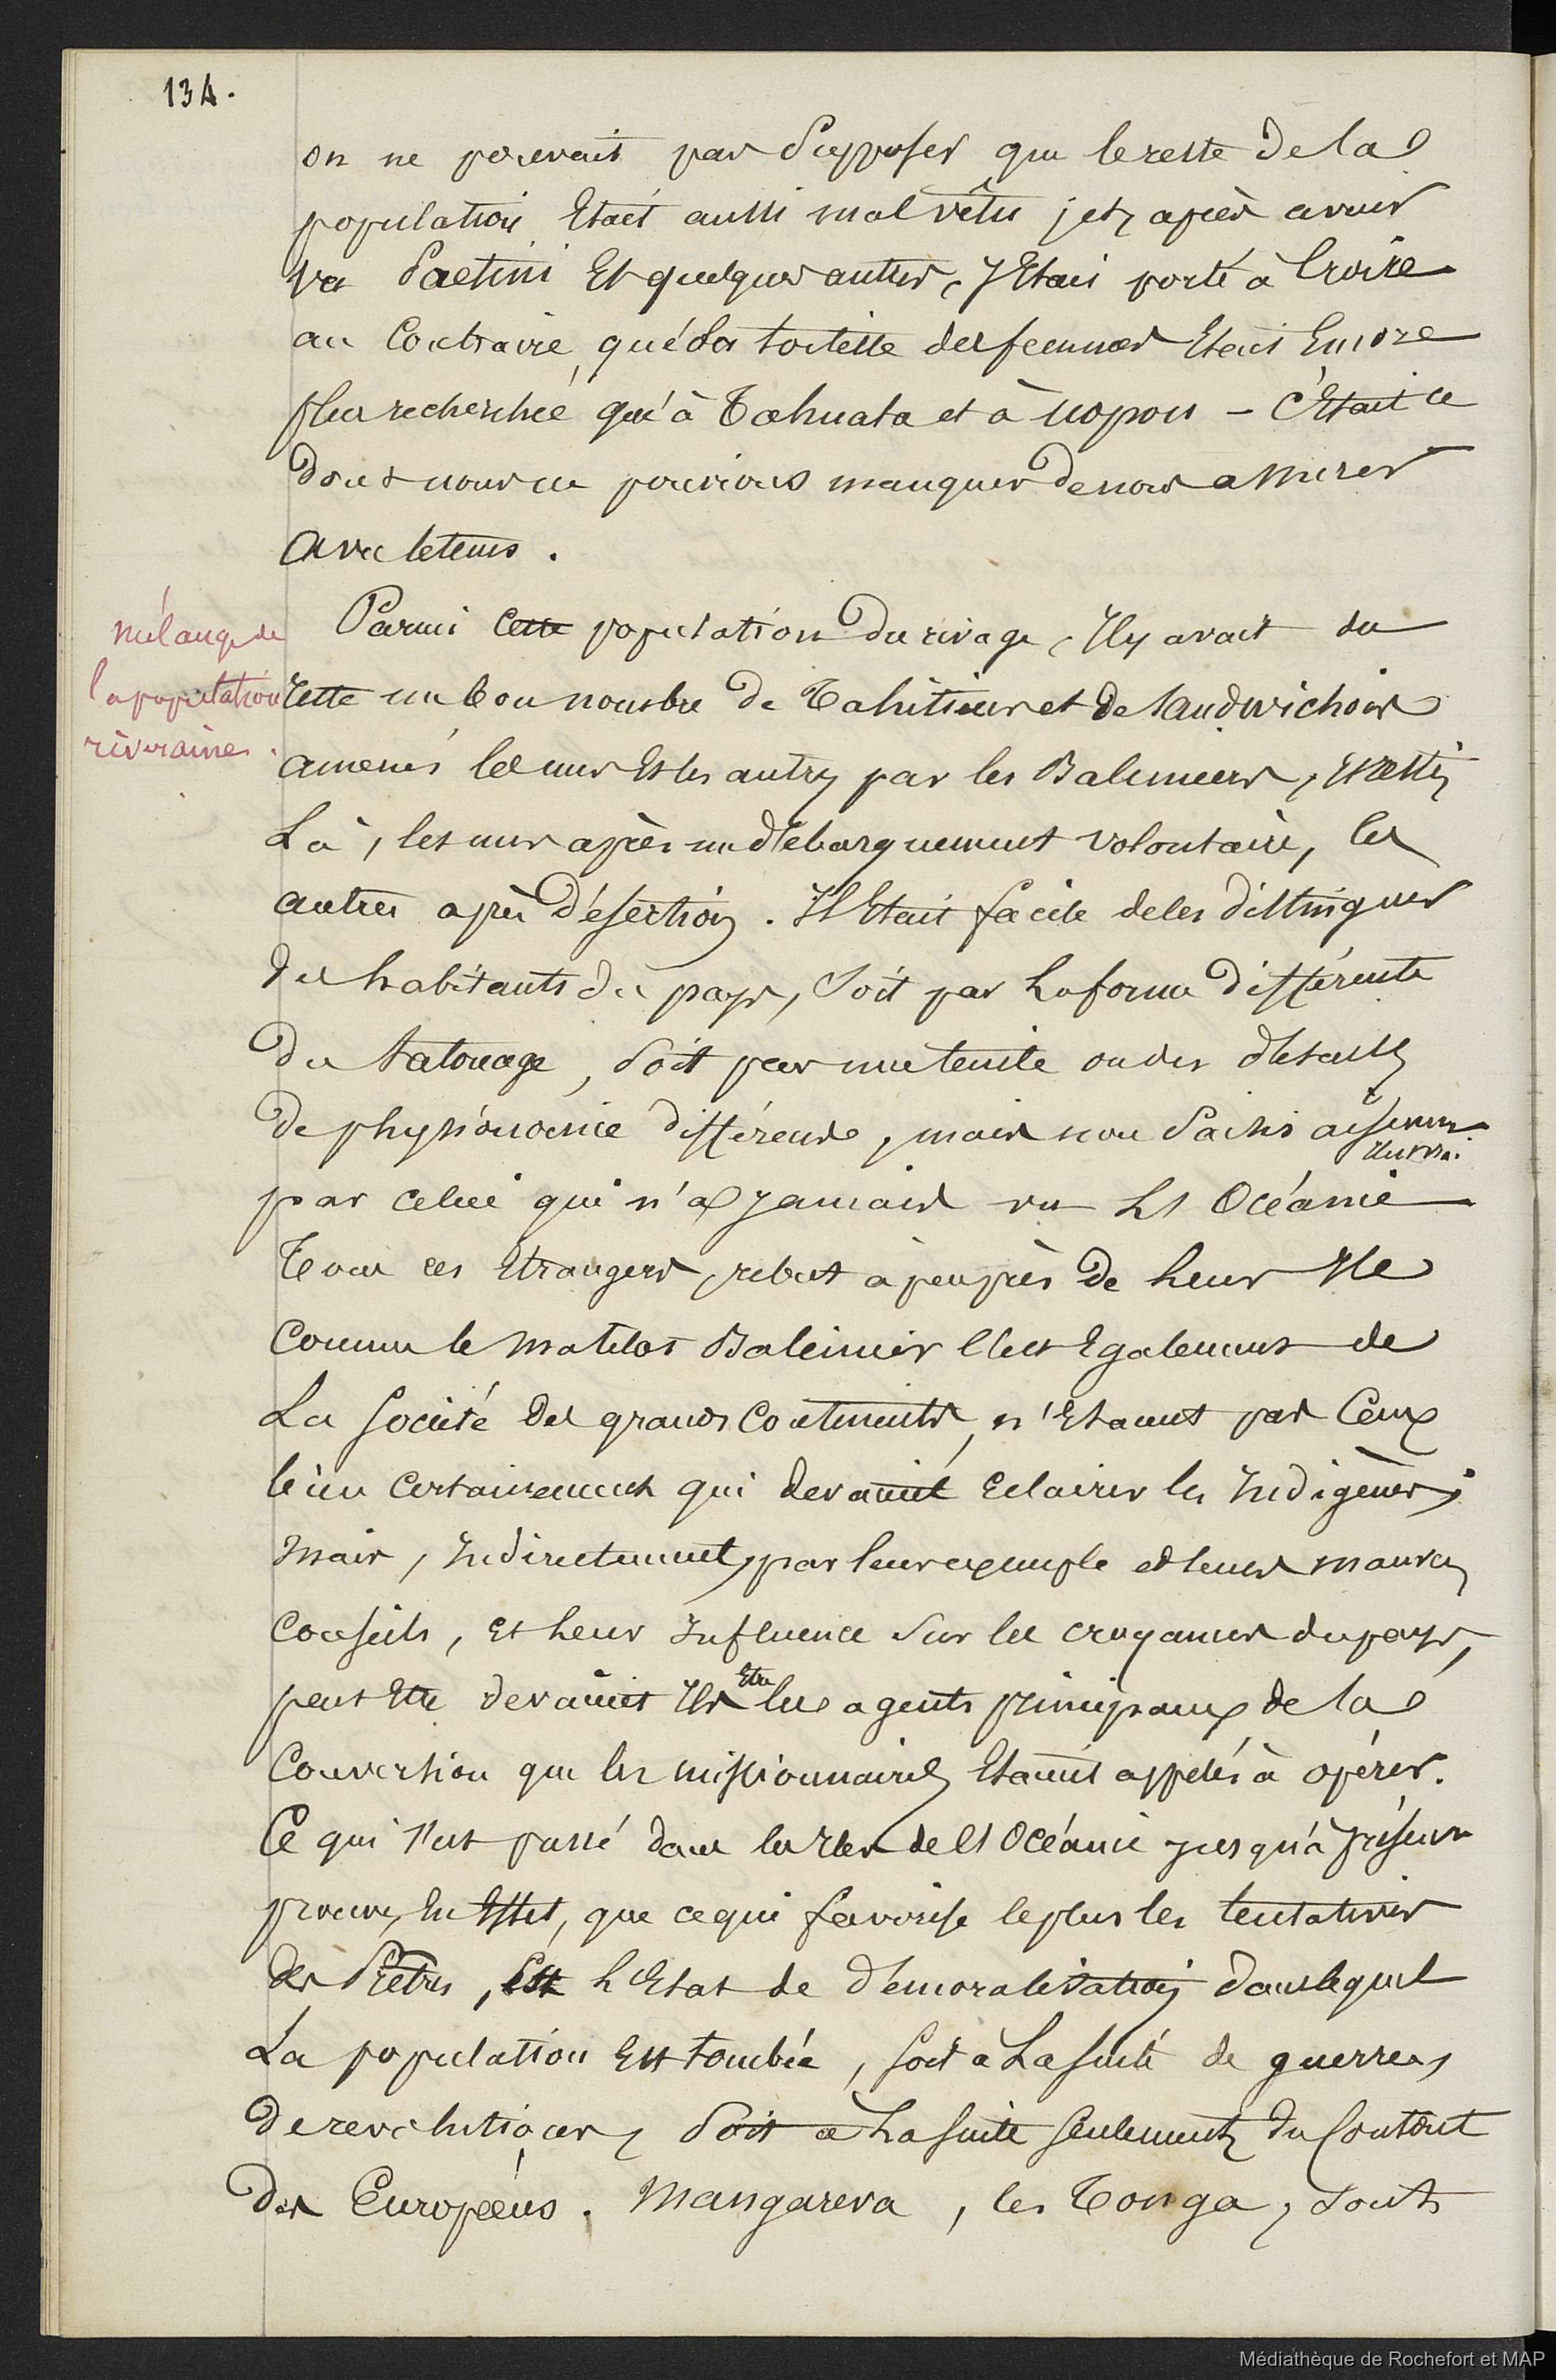 134.
on ne pouvait pas supposer que le reste de la
population était aussi mal vêtu ; et, après avoir
vu Paetini et quelques autres, j'étais porté à croire
au contraire, que la toilette des femmes était encore
plus recherchée qu'à Tahuata et à uapou – c'était ce
dont nous ne pouvions manquer de nous assurer
avec le tems.
mélange de
la population
riveraine.
Parmi cette population du rivage, il y avait du
reste un bon nombre de Tahitiens et de Sandwichois
amenés les uns et les autres par les Baleiniers, et restés
là, les uns après un débarquement volontaire, les
autres après désertion. Il était facile de les distinguer
des habitants du pays, soit par la forme différente
du tatouage, soit par une teinte ou des détails
de physionomie différents, mais non saisis aisément
par celui qui n'a jamais vu l'Océanie
Tous ces étrangers, rebut à peu près de leur île
comme le matelot Baleinier l'est également de
la société des grands continents, n'étaient pas ceux
bien certainement qui devaient éclairer les indigènes ;
mais, indirectement, par leur exemple et leurs mauvais
conseils, et leur influence sur les croyances du pays,
peut être devaient ils être les agents principaux de la
conversion que les missionnaires étaient appelés à opérer.
Ce qui s'est passé dans les îles de l'Océanie jusqu'à présent
prouve, en effet, que ce qui favorise le plus les tentatives
des Prêtres, est l'état de démoralisation dans lequel
la population est tombée, soit à la suite de guerres,
de révolutions, soit à la suite seulement du contact
des Européens. Mangareva, les Tonga, sont